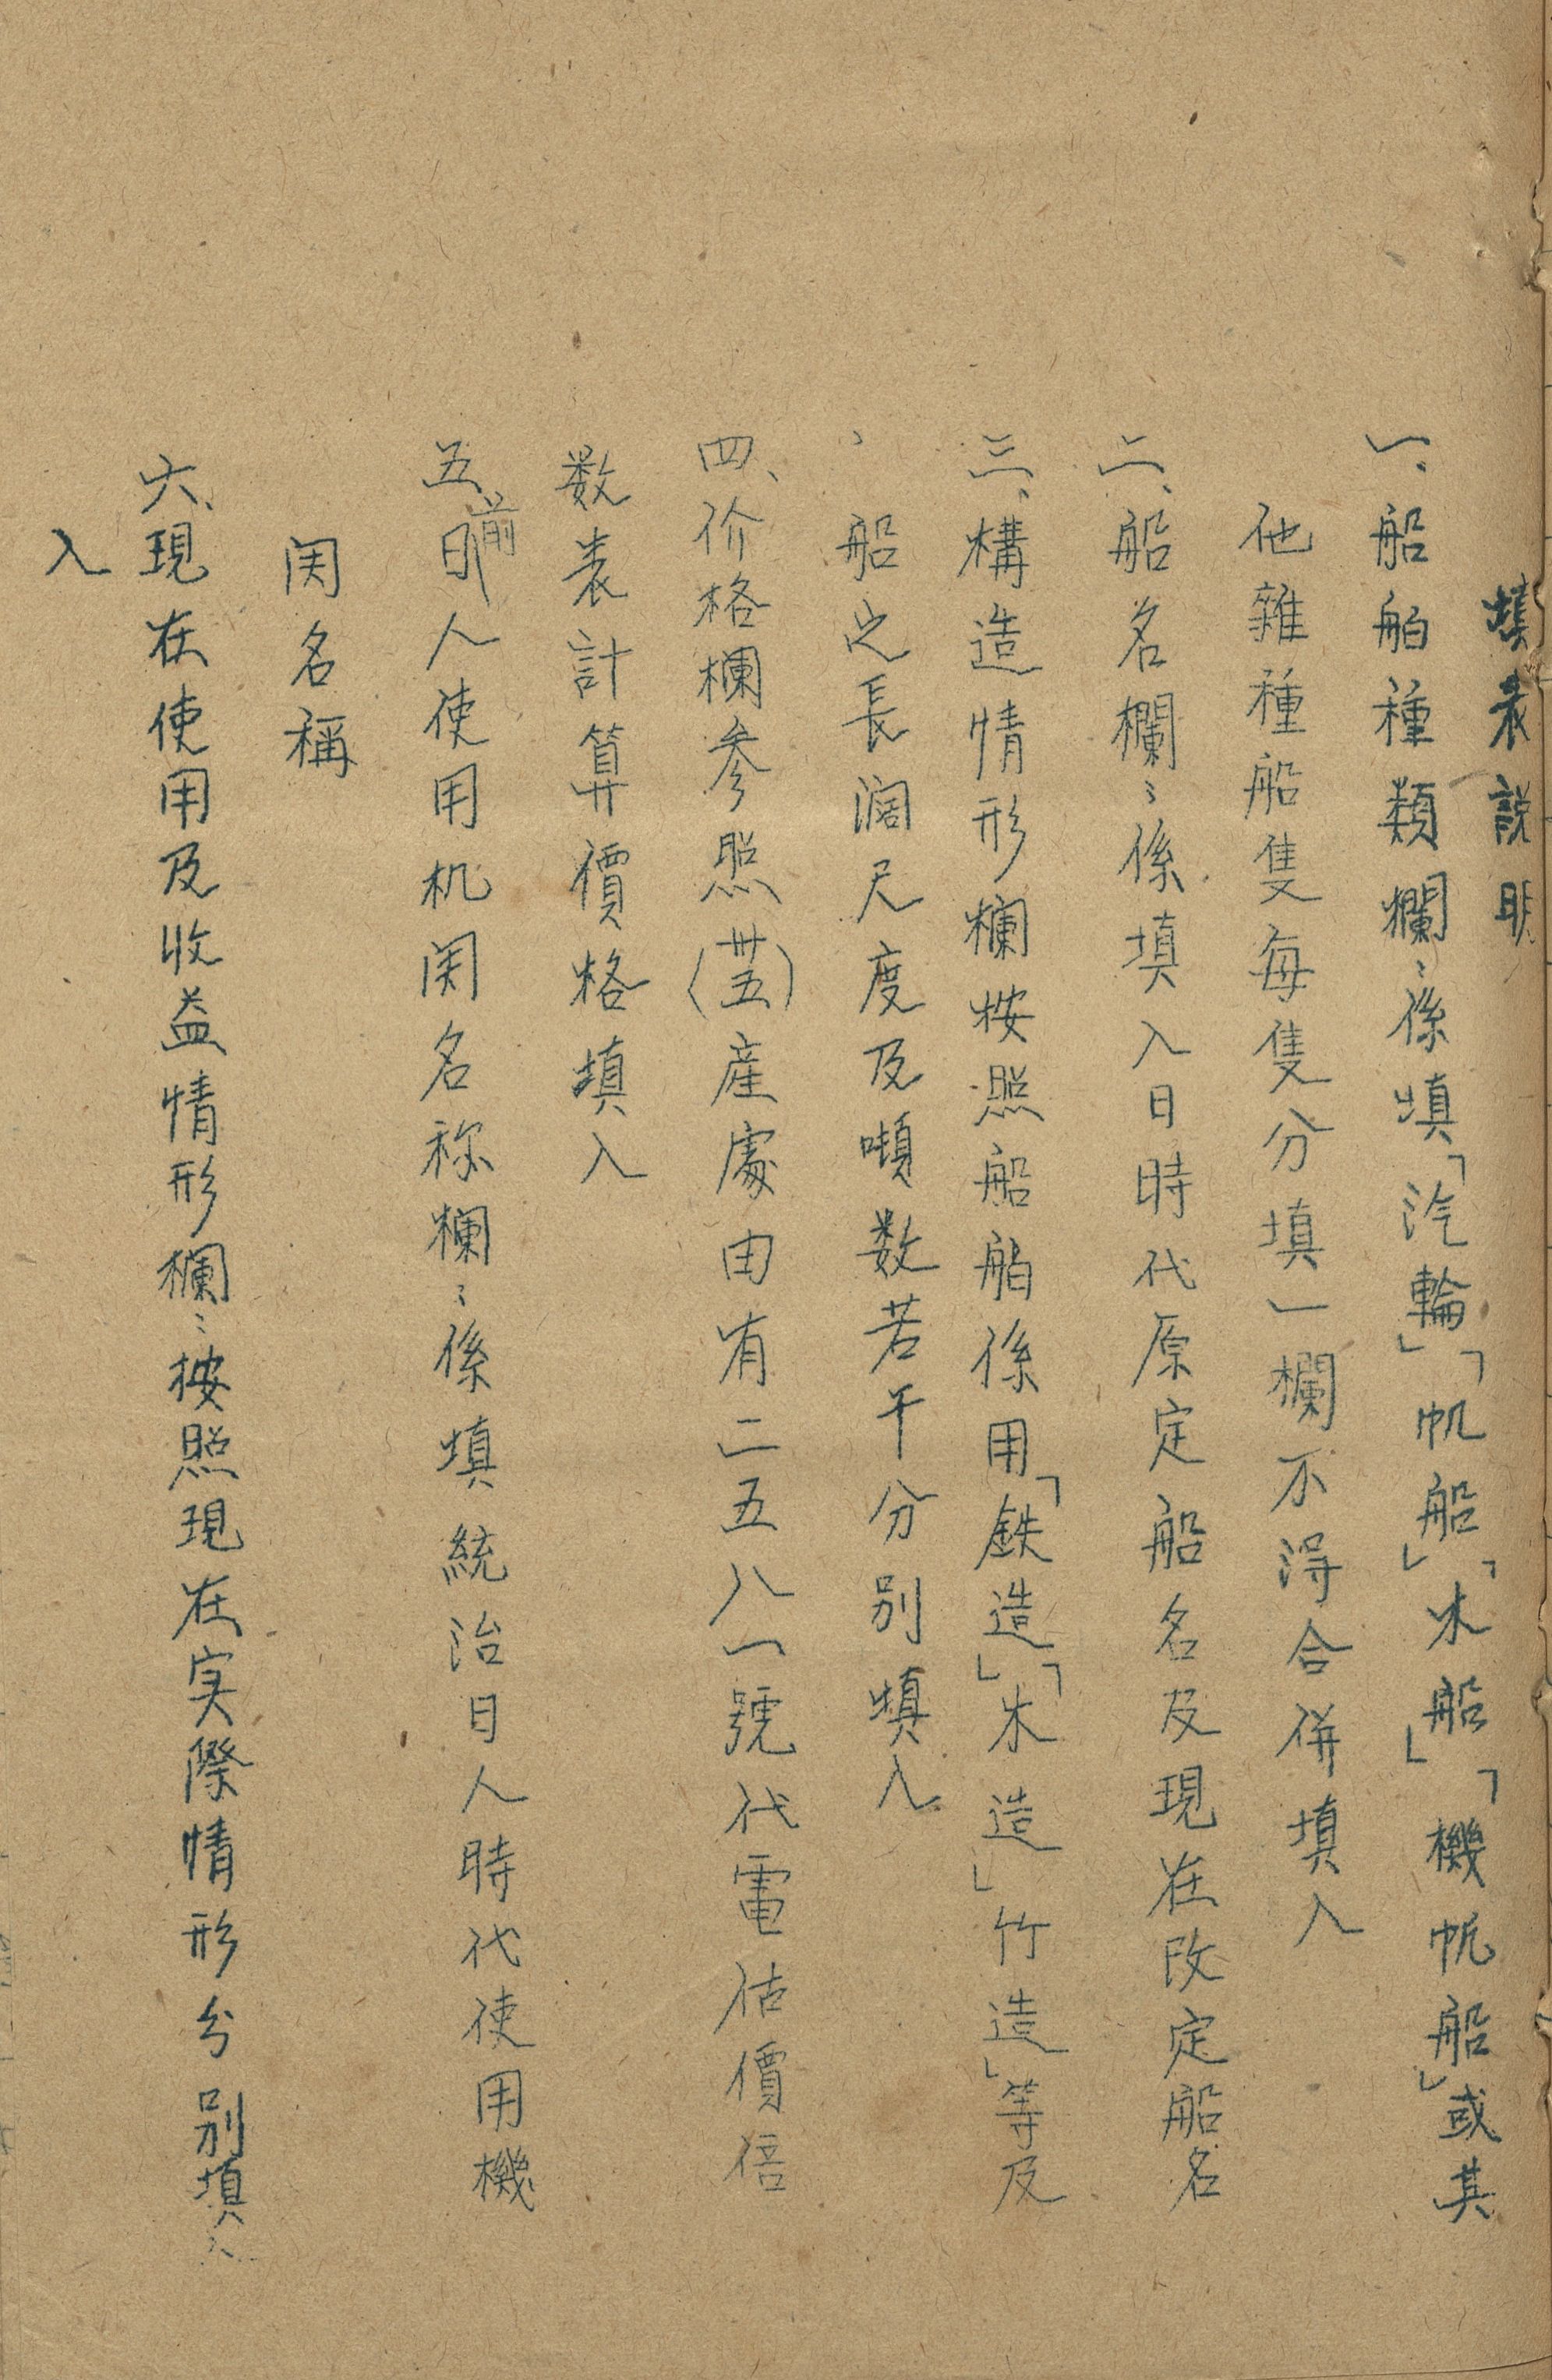 填表說明
一、船舶種類欄：係填「汽輪」「帆船」「木船」「機帆船」或其
他雜種船隻每隻分填一欄不得合併填入
二、船名欄：係填入日時代原定船名及現在改定船名
三、構造情形欄按照船舶係用「鉄造」「木造」竹造」等及
、船之長濶尺度及噸数若干分別填入
四、价格欄參照（卅五）產處由有二五八一號代電估價倍
数表計算價格填入
五、前日人使用机関名称欄：係填統治日人時代使用機
関名稱
六、現在使用及收益情形欄：按照現在实際情形分別填
入